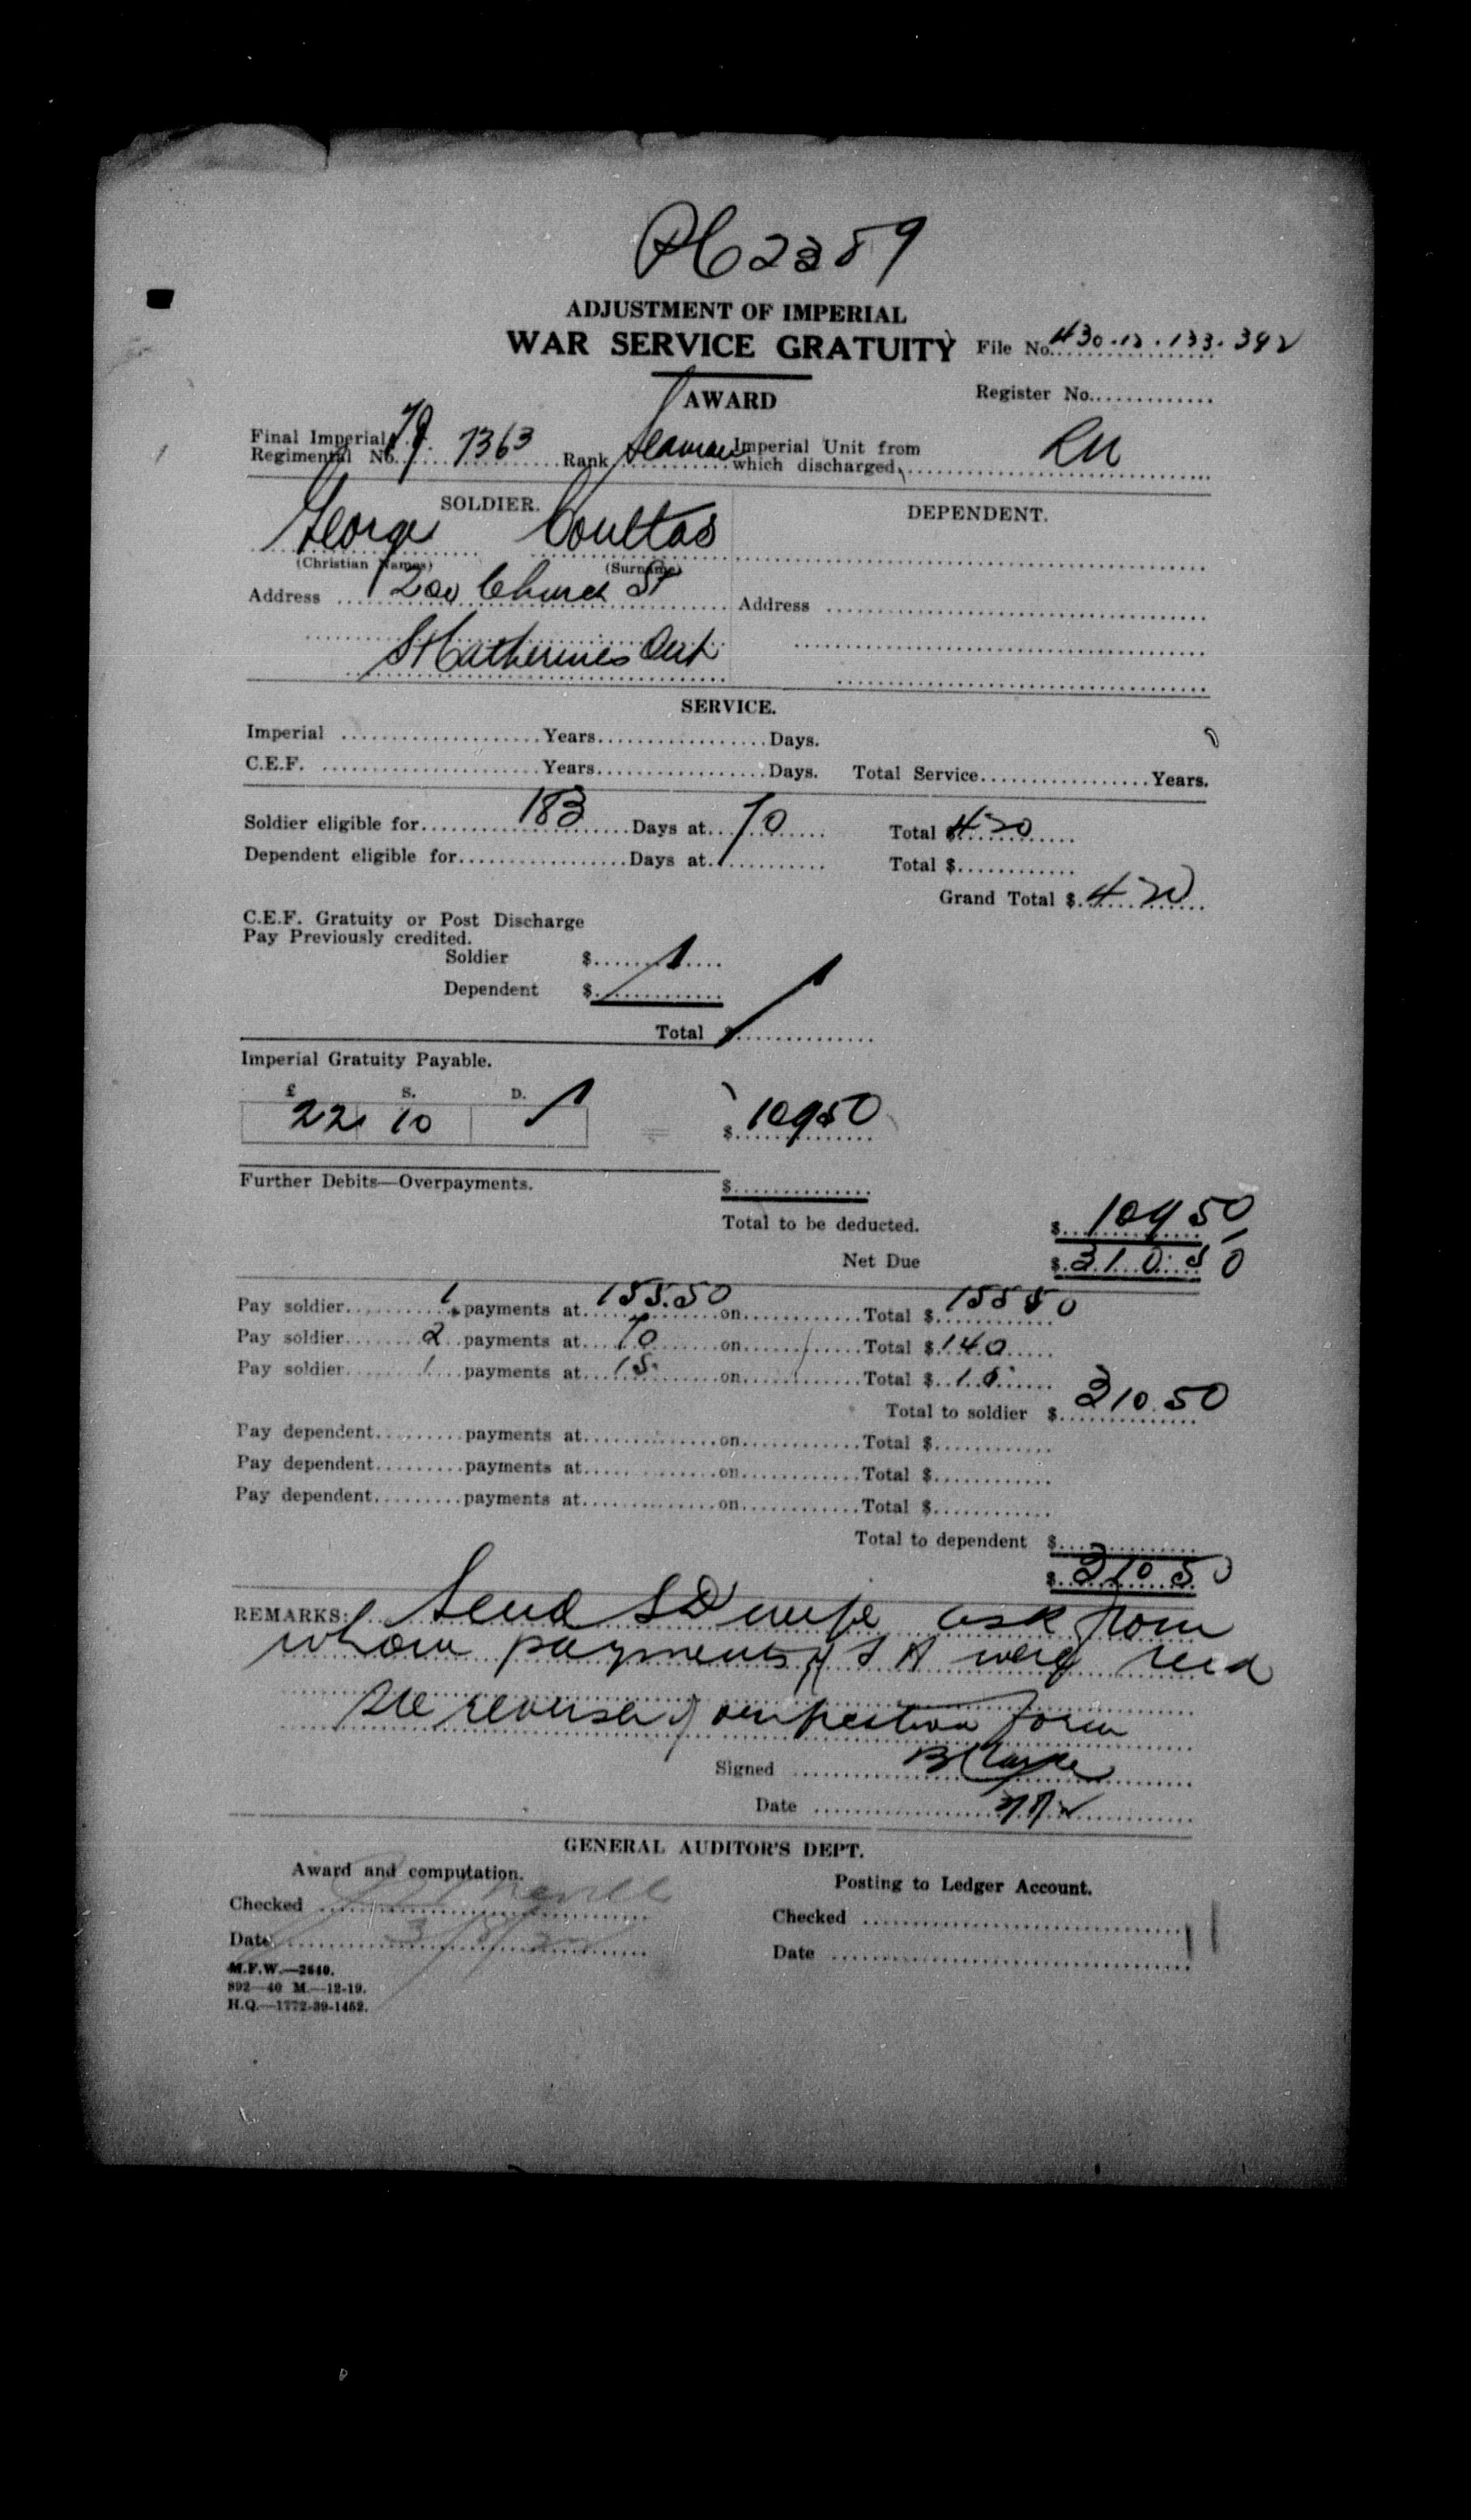 2389
ADJUSTMENT OF IMPERIAL
WAR SERVICE GRATUITY File No. 430-12-133-392
AWARD Register No.
Final Imperial
Regimental No. 7363 Rank Seaman Imperial Unit from which discharged
SOLDIER. DEPENDENT.
George Coultas
(Christian Names) (Surname)
Address 200 Church St Address
St Catherines Ont
SERVICE.
Imperial Years Days.
C.E.F. Years Days. Total Service Years.
Soldier eligible for 183 Days at 70 Total $ 420
Dependent eligible for Days at Total $
Grand Total $ 420
C.E.F. Gratuity or Post Discharge
Pay Previously credited.
Soldier $
Dependent $
Total $
Imperial Gratuity Payable.
£ S. D.
22 10 = $ 109 50
Further Debits—Overpayments. $
Total to be deducted. $ 109 50
Net Due $ 310 50
Pay soldier 1 payments at 155.50 on Total $ 155 50
Pay soldier 2 payments at 70 on Total $ 140
Pay soldier 1 payments at 15 on Total $ 15
Total to soldier $ 310.50
Pay dependent payments at on Total $
Pay dependent payments at on Total $
Pay dependent payments at on Total $
Total to dependent $
$ 310 50
REMARKS: Send ask from
whom payments of S A were recd
see reverse of verification form
Signed
Date
GENERAL AUDITOR'S DEPT.
Award and computation. Posting to Ledger Account.
Checked Checked
Date Date
M.F.W.—2640.
892—40 M.—12-19.
H.Q.—1772-39-1462.